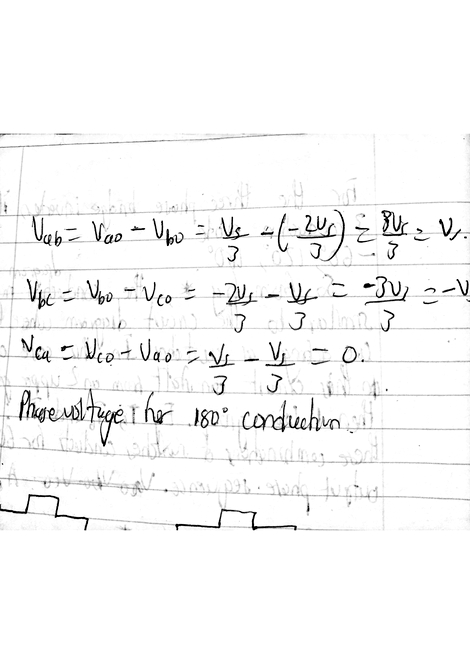 Vab = Vao - Vbo = Vs/3 - (-2Vs/3) = 3Vs/3 = Vs.
Vbc = Vbo - Vco = -2Vs/3 - Vs/3 = -3Vs/3 = -V
Vca = Vco - Vao = Vs/3 - Vs/3 = 0.
Phase voltage for 180° conduction.